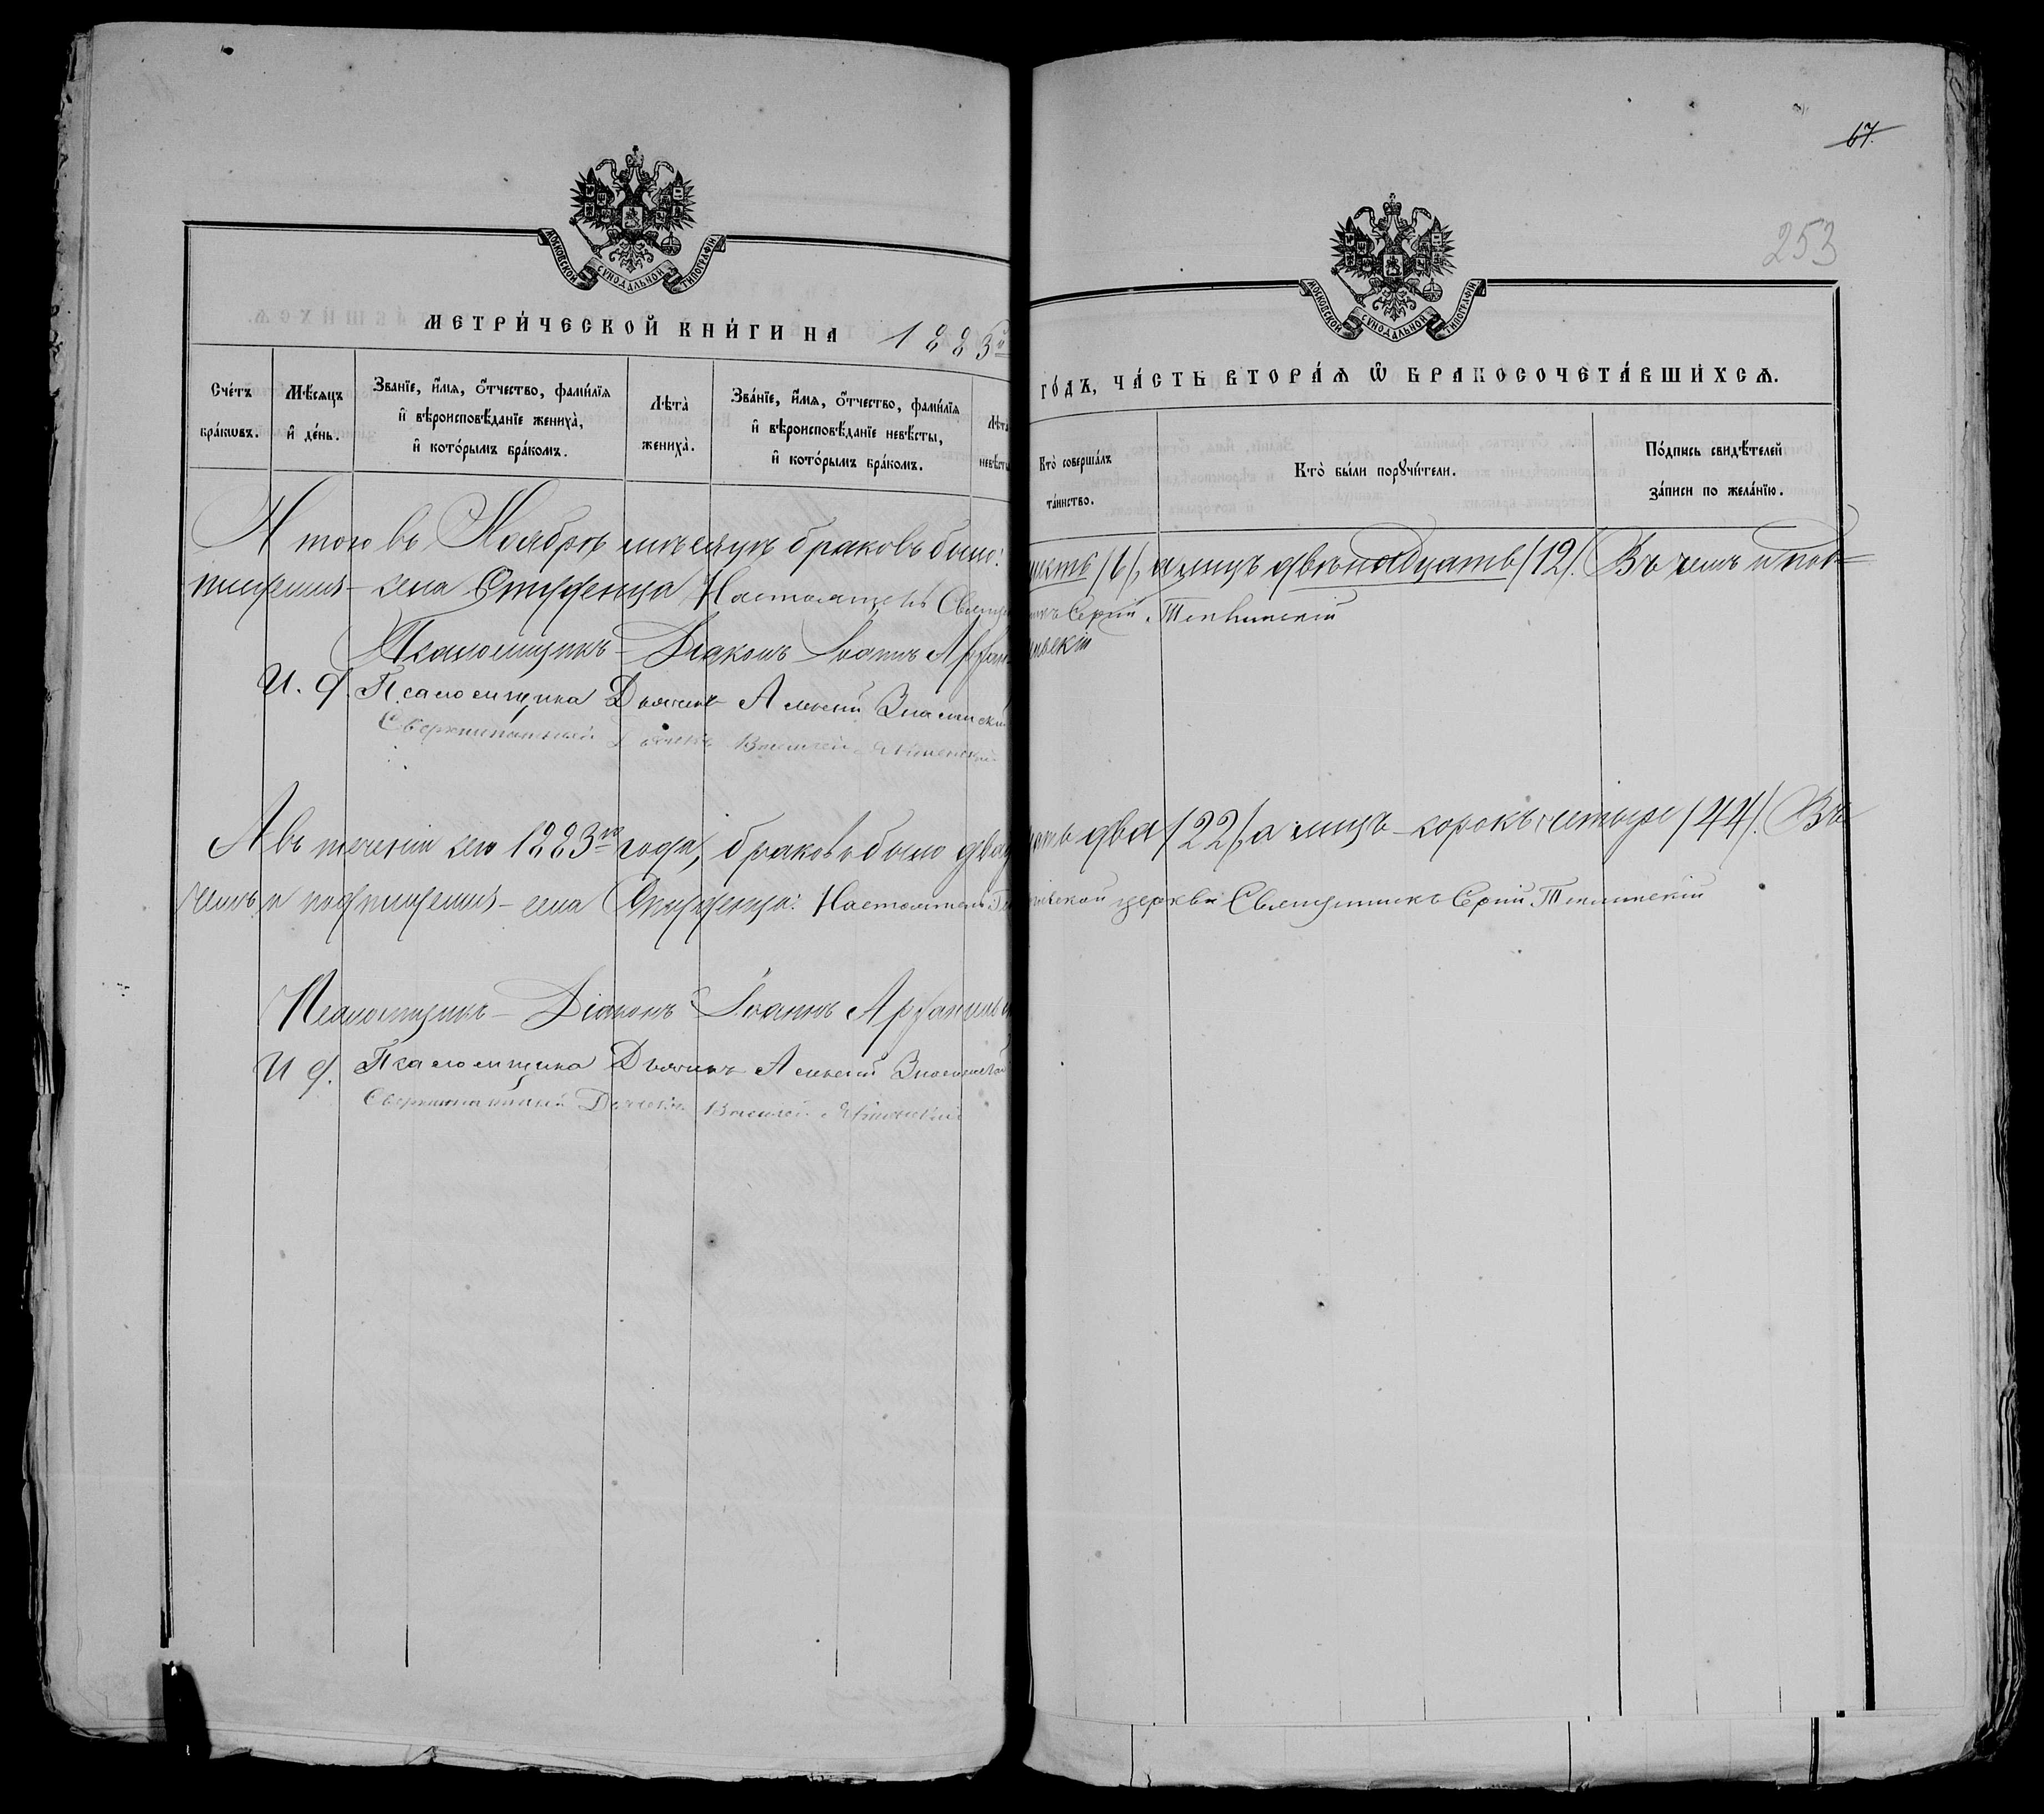 67.
253
МОСКОВСКОЙ СѴНОДАЛЬНОЙ ТИПОГРАФІИ
МОСКОВСКОЙ СѴНОДАЛЬНОЙ ТИПОГРАФІИ
МЕТРИ́ЧЕСКОЙ КНИ́ГИ НА 1883й ГО́ДЪ, ЧА́СТЬ ВТОРА́Ѧ Ѡ҆ БРАКОСОЧЕТА́ВШИХСѦ.
Сче́тъ бра́кѡвъ.
Мѣ́сяцъ и҆ де́нь.
Зва́нїе, и҆́мѧ, ѻ҆́тчество, фами́лїѧ и҆ вѣроисповѣ́данїе жениха̀, и҆ кото́рымъ бра́комъ.
Лѣта̀ жениха̀.
Зва́нїе, и҆́мѧ, ѻ҆́тчество, фами́лїѧ и҆ вѣроисповѣ́данїе невѣ́сты, и҆ кото́рымъ бра́комъ.
Лѣта̀ невѣ́сты
Кто̀ соверша́лъ та́инство.
Кто̀ бы́ли порꙋчи́тели.
По́дпись свидѣ́телей за́писи по жела́нїю.
Итого въ Ноябрѣ мѣсяцѣ браковъ было: шесть (6), а лицъ двѣнадцать (12). Въ чемъ и под=
пишемся - села Студенца Настоятель Священникъ Сергій Тепкинскій
Псаломщикъ - Діаконъ Іоаннъ
И. д. Псаломщика Дьячекъ Алексій
Сверхштатный Дьячекъ Василій
А въ теченіи сего 1883го года, браковъ было двадцать два (22), а лицъ - сорокъ четыре (44). Въ
чемъ и подпишемся - села Студенца: Настоятель церкви Священникъ Сергій
Псаломщикъ - Діаконъ Іоаннъ
И д. Псаломщика Дьячекъ Алексій
Сверхштатный Дьячекъ Василій